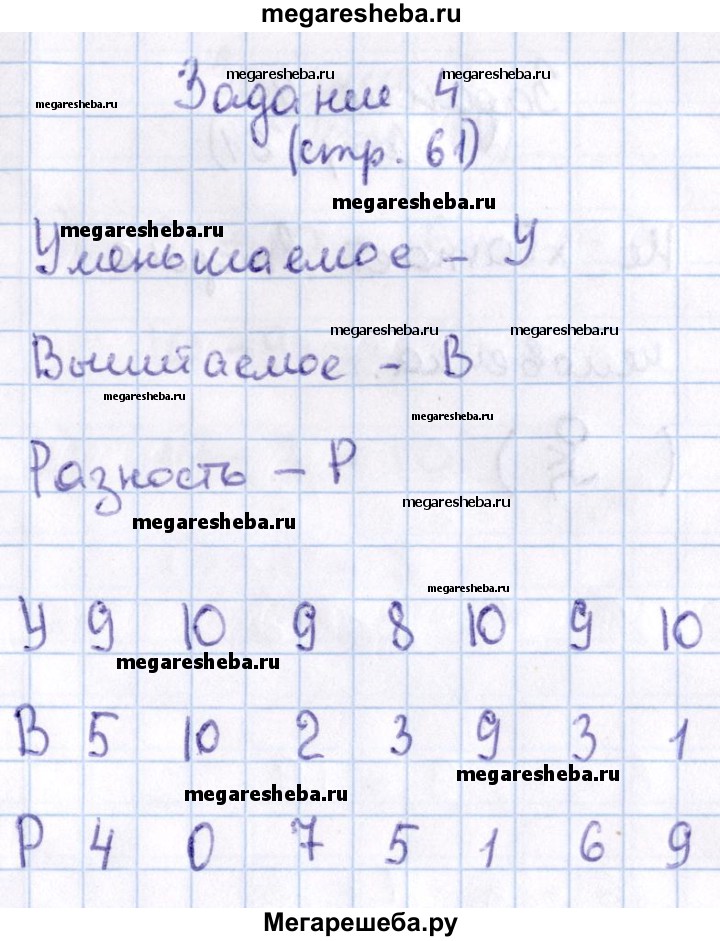 megaresheba.ru
megaresheba.ru megaresheba.ru
megaresheba.ru
Задание 4
(стр. 61)
megaresheba.ru
megaresheba.ru
Уменьшаемое – У
megaresheba.ru megaresheba.ru
Вычитаемое – В
megaresheba.ru
megaresheba.ru
Разность – Р
megaresheba.ru
megaresheba.ru
megaresheba.ru
У 9 10 9 8 10 9 10
megaresheba.ru
В 5 10 2 3 9 3 1
megaresheba.ru
megaresheba.ru
Р 4 0 7 5 1 6 9
Мегарешеба.ру